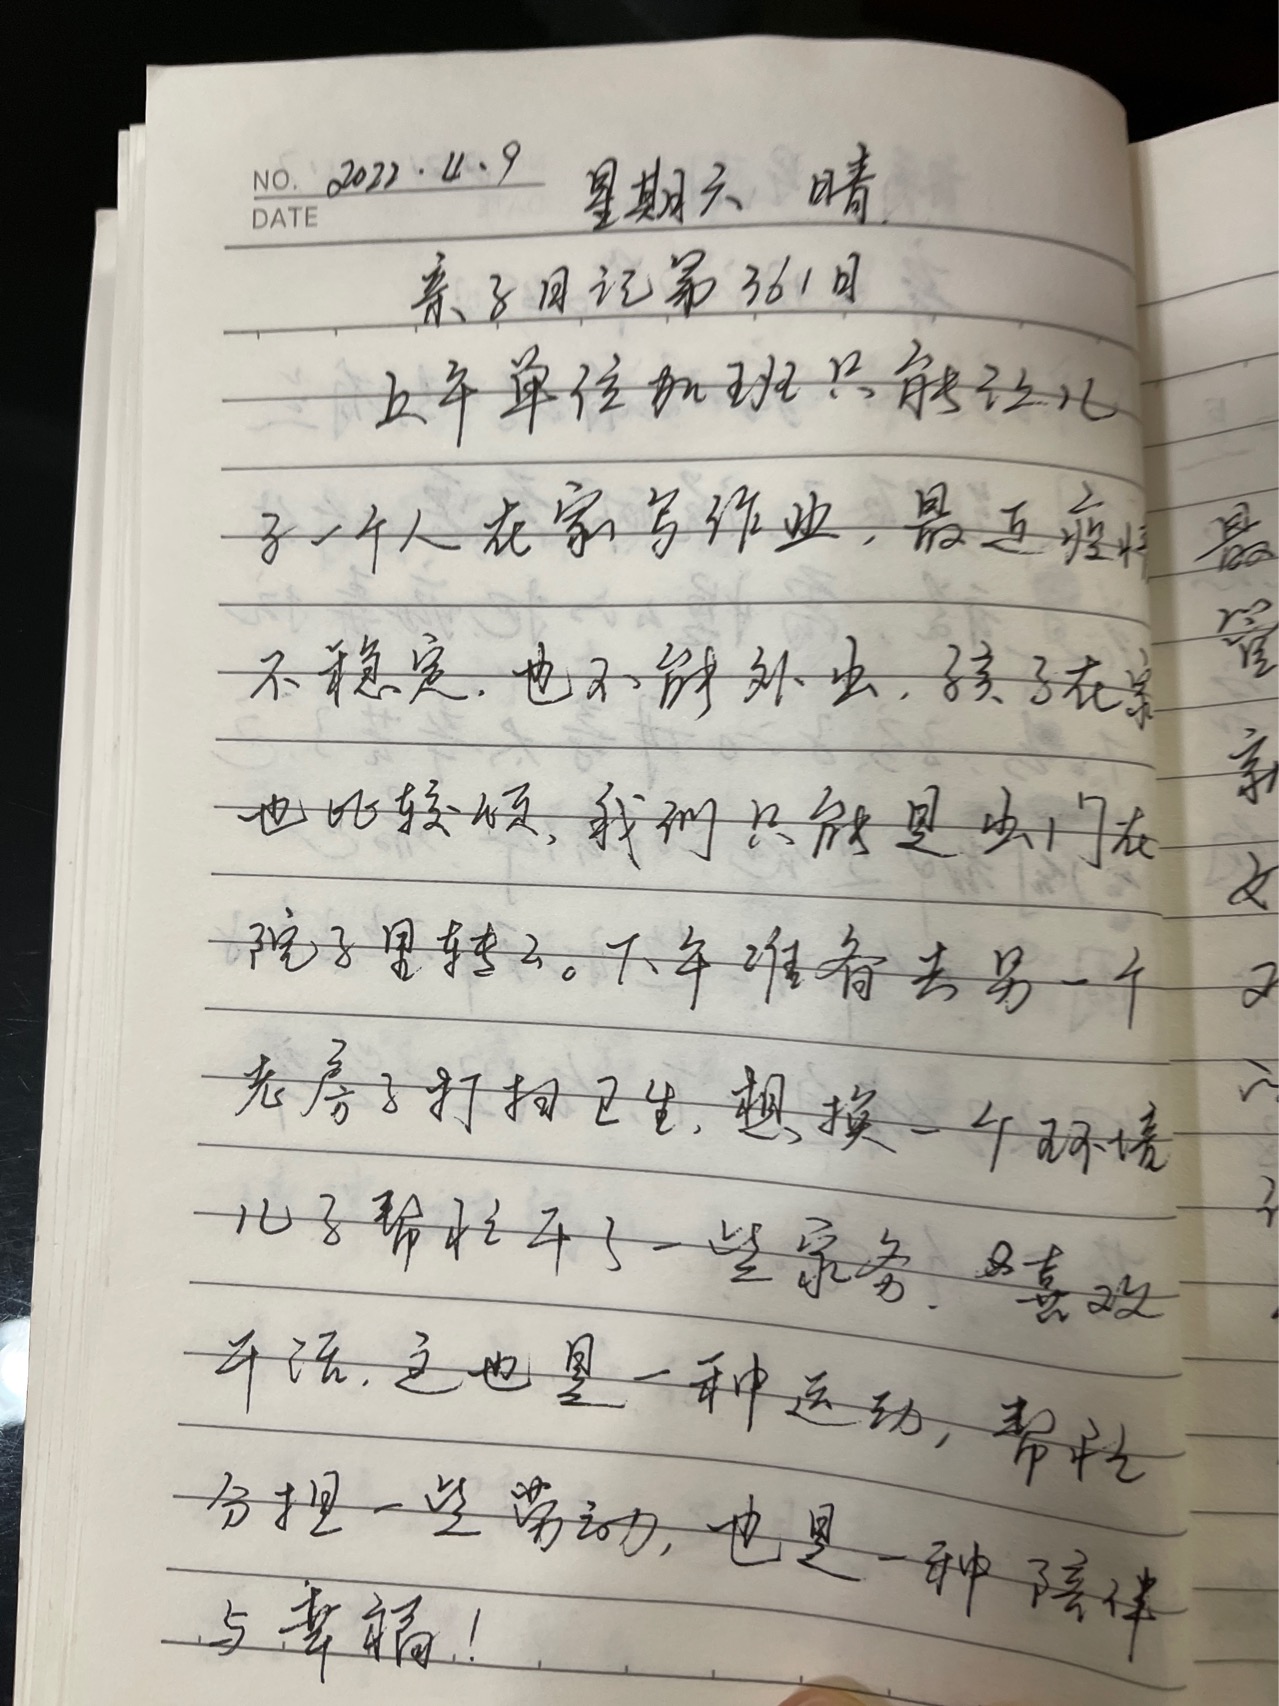 NO. 2022.4.9 星期六 晴
DATE
亲子日记第361日
上午单位加班只能让儿
子一个人在家写作业,最近疫情
不稳定,也不能外出,孩子在家
也比较烦,我们只能是出门在
院子里转转。下午准备去另一个
老房子打扫卫生,想换一个环境
儿子帮忙干了一些家务,喜欢
干活,这也是一种运动,帮忙
分担一些劳动,也是一种陪伴
与幸福!
最
室
亲
女